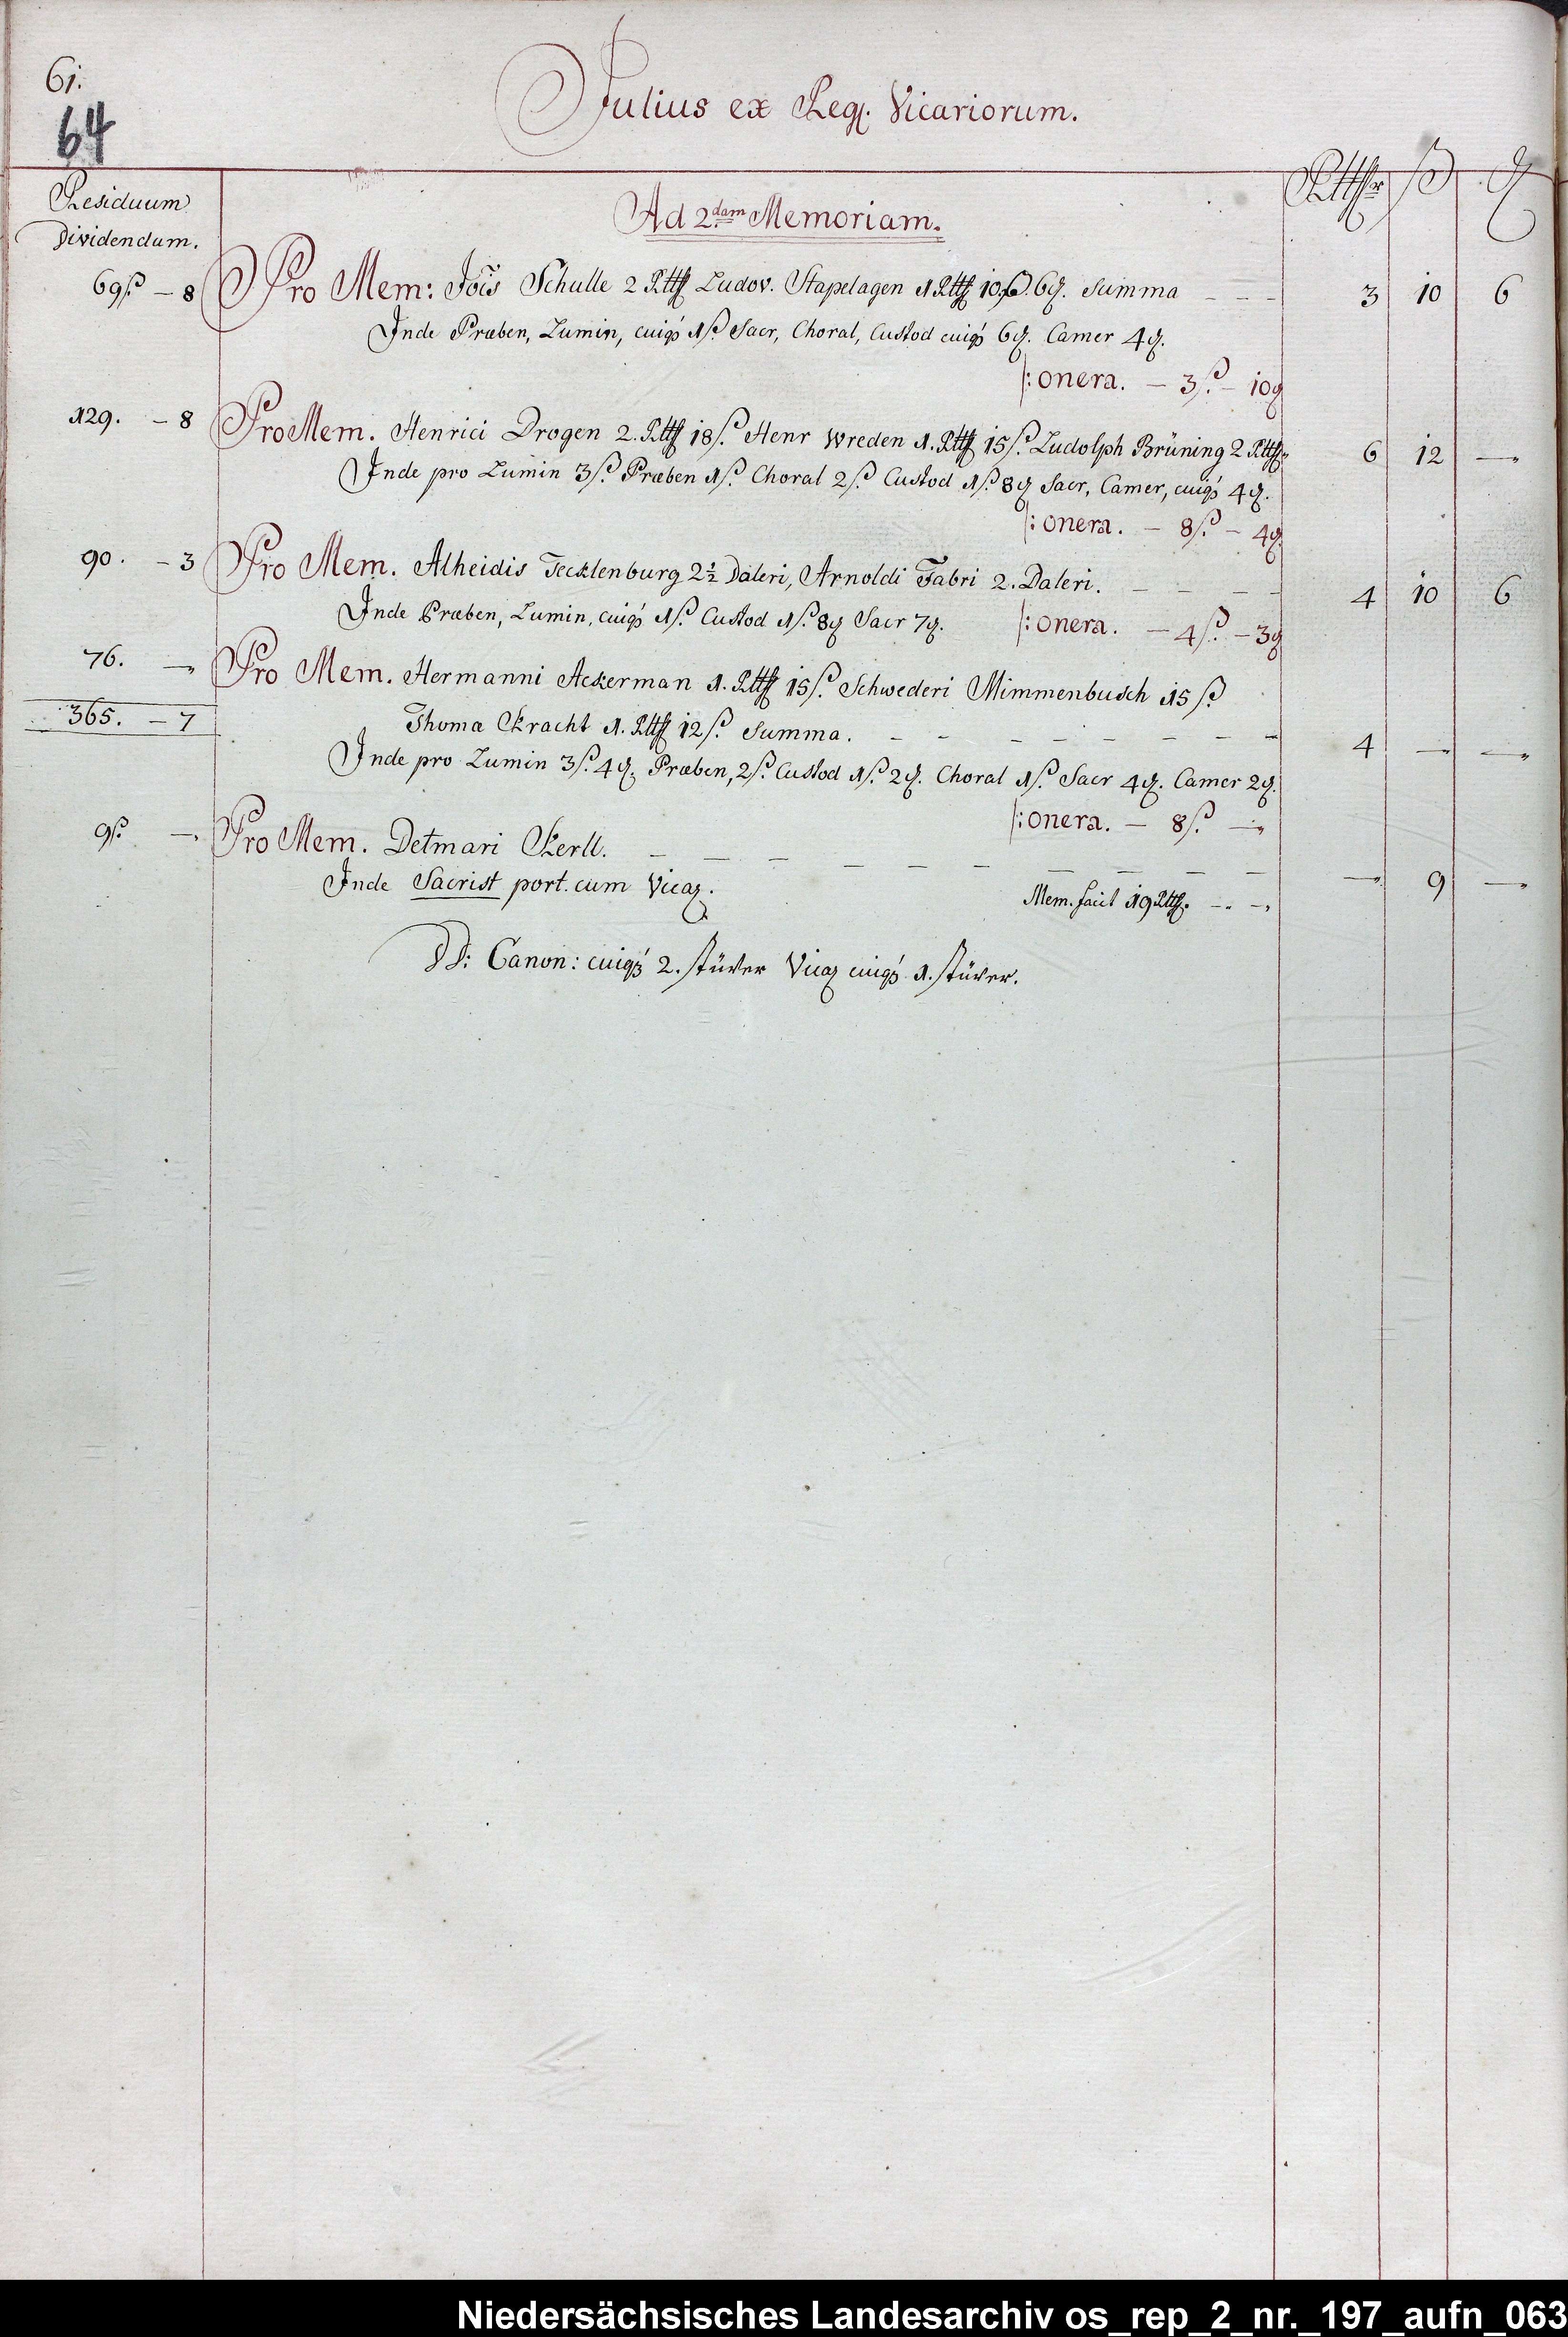 61.
64
Julius ex Reg. Vicariorum.
Residuum
Dividendum.
Rthlr ß ₰
Ad 2dam Memoriam.
69ß. - 8 Pro Mem: Jois Schulle 2 Rthl Ludov. Stapelagen 1 Rthl 10ß. 6₰. Summa - - - 3 10 6
Inde Præben, Lumin, cuiqꝫ 1ß. Sacr, Choral, Custod cuiqꝫ 6₰. Camer 4₰.
/: onera. - 3ß. - 10₰
129. - 8 Pro Mem. Henrici Drogen 2. Rthl 18ß. Henr Wreden 1. Rthl 15ß. Ludolph Brüning 2 Rthl. 6 12 —
Inde pro Lumin 3ß. Præben 1ß. Choral 2ß. Custod 1ß. 8₰ Sacr, Camer, cuiqꝫ 4₰.
/: onera. - 8ß. - 4₰.
90. - 3 Pro Mem. Alheidis Tecklenburg 2½ Daleri, Arnoldi Fabri 2. Daleri. - - - - 4 10 6
Inde Præben, Lumin, cuiqꝫ 1ß. Custod 1ß. 8₰ Sacr 7₰. /: onera. - 4ß. - 3₰
76. — Pro Mem. Hermanni Ackerman 1. Rthl 15ß. Schwederi Mimmenbusch 15ß
365. - 7 Thomæ Kracht 1. Rthl 12ß. Summa. - - - - - - - - 4 — —
Inde pro Lumin 3ß. 4₰. Præben, 2ß. Custod 1ß. 2₰. Choral 1ß. Sacr 4₰. Camer 2₰.
/: onera. - 8ß. —
9ß. — Pro Mem. Detmari Kerll. - - - - - - - - - - — 9 —
Inde Sacrist port. cum Vicaꝝ. Mem. facit 19 Rthl. - -
DD: Canon: cuiqꝫ 2. stüver Vicaꝝ cuiqꝫ 1. stüver.
Niedersächsisches Landesarchiv os_rep_2_nr._197_aufn_063